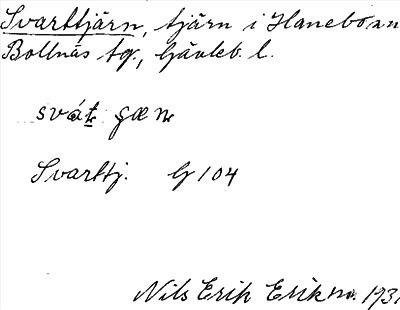 Svarttjärn, tjärn i Hanebo sn
Bollnäs tg., Gävleb. l.
Svarttj. G 104
Nils Erik Erikno. 1931